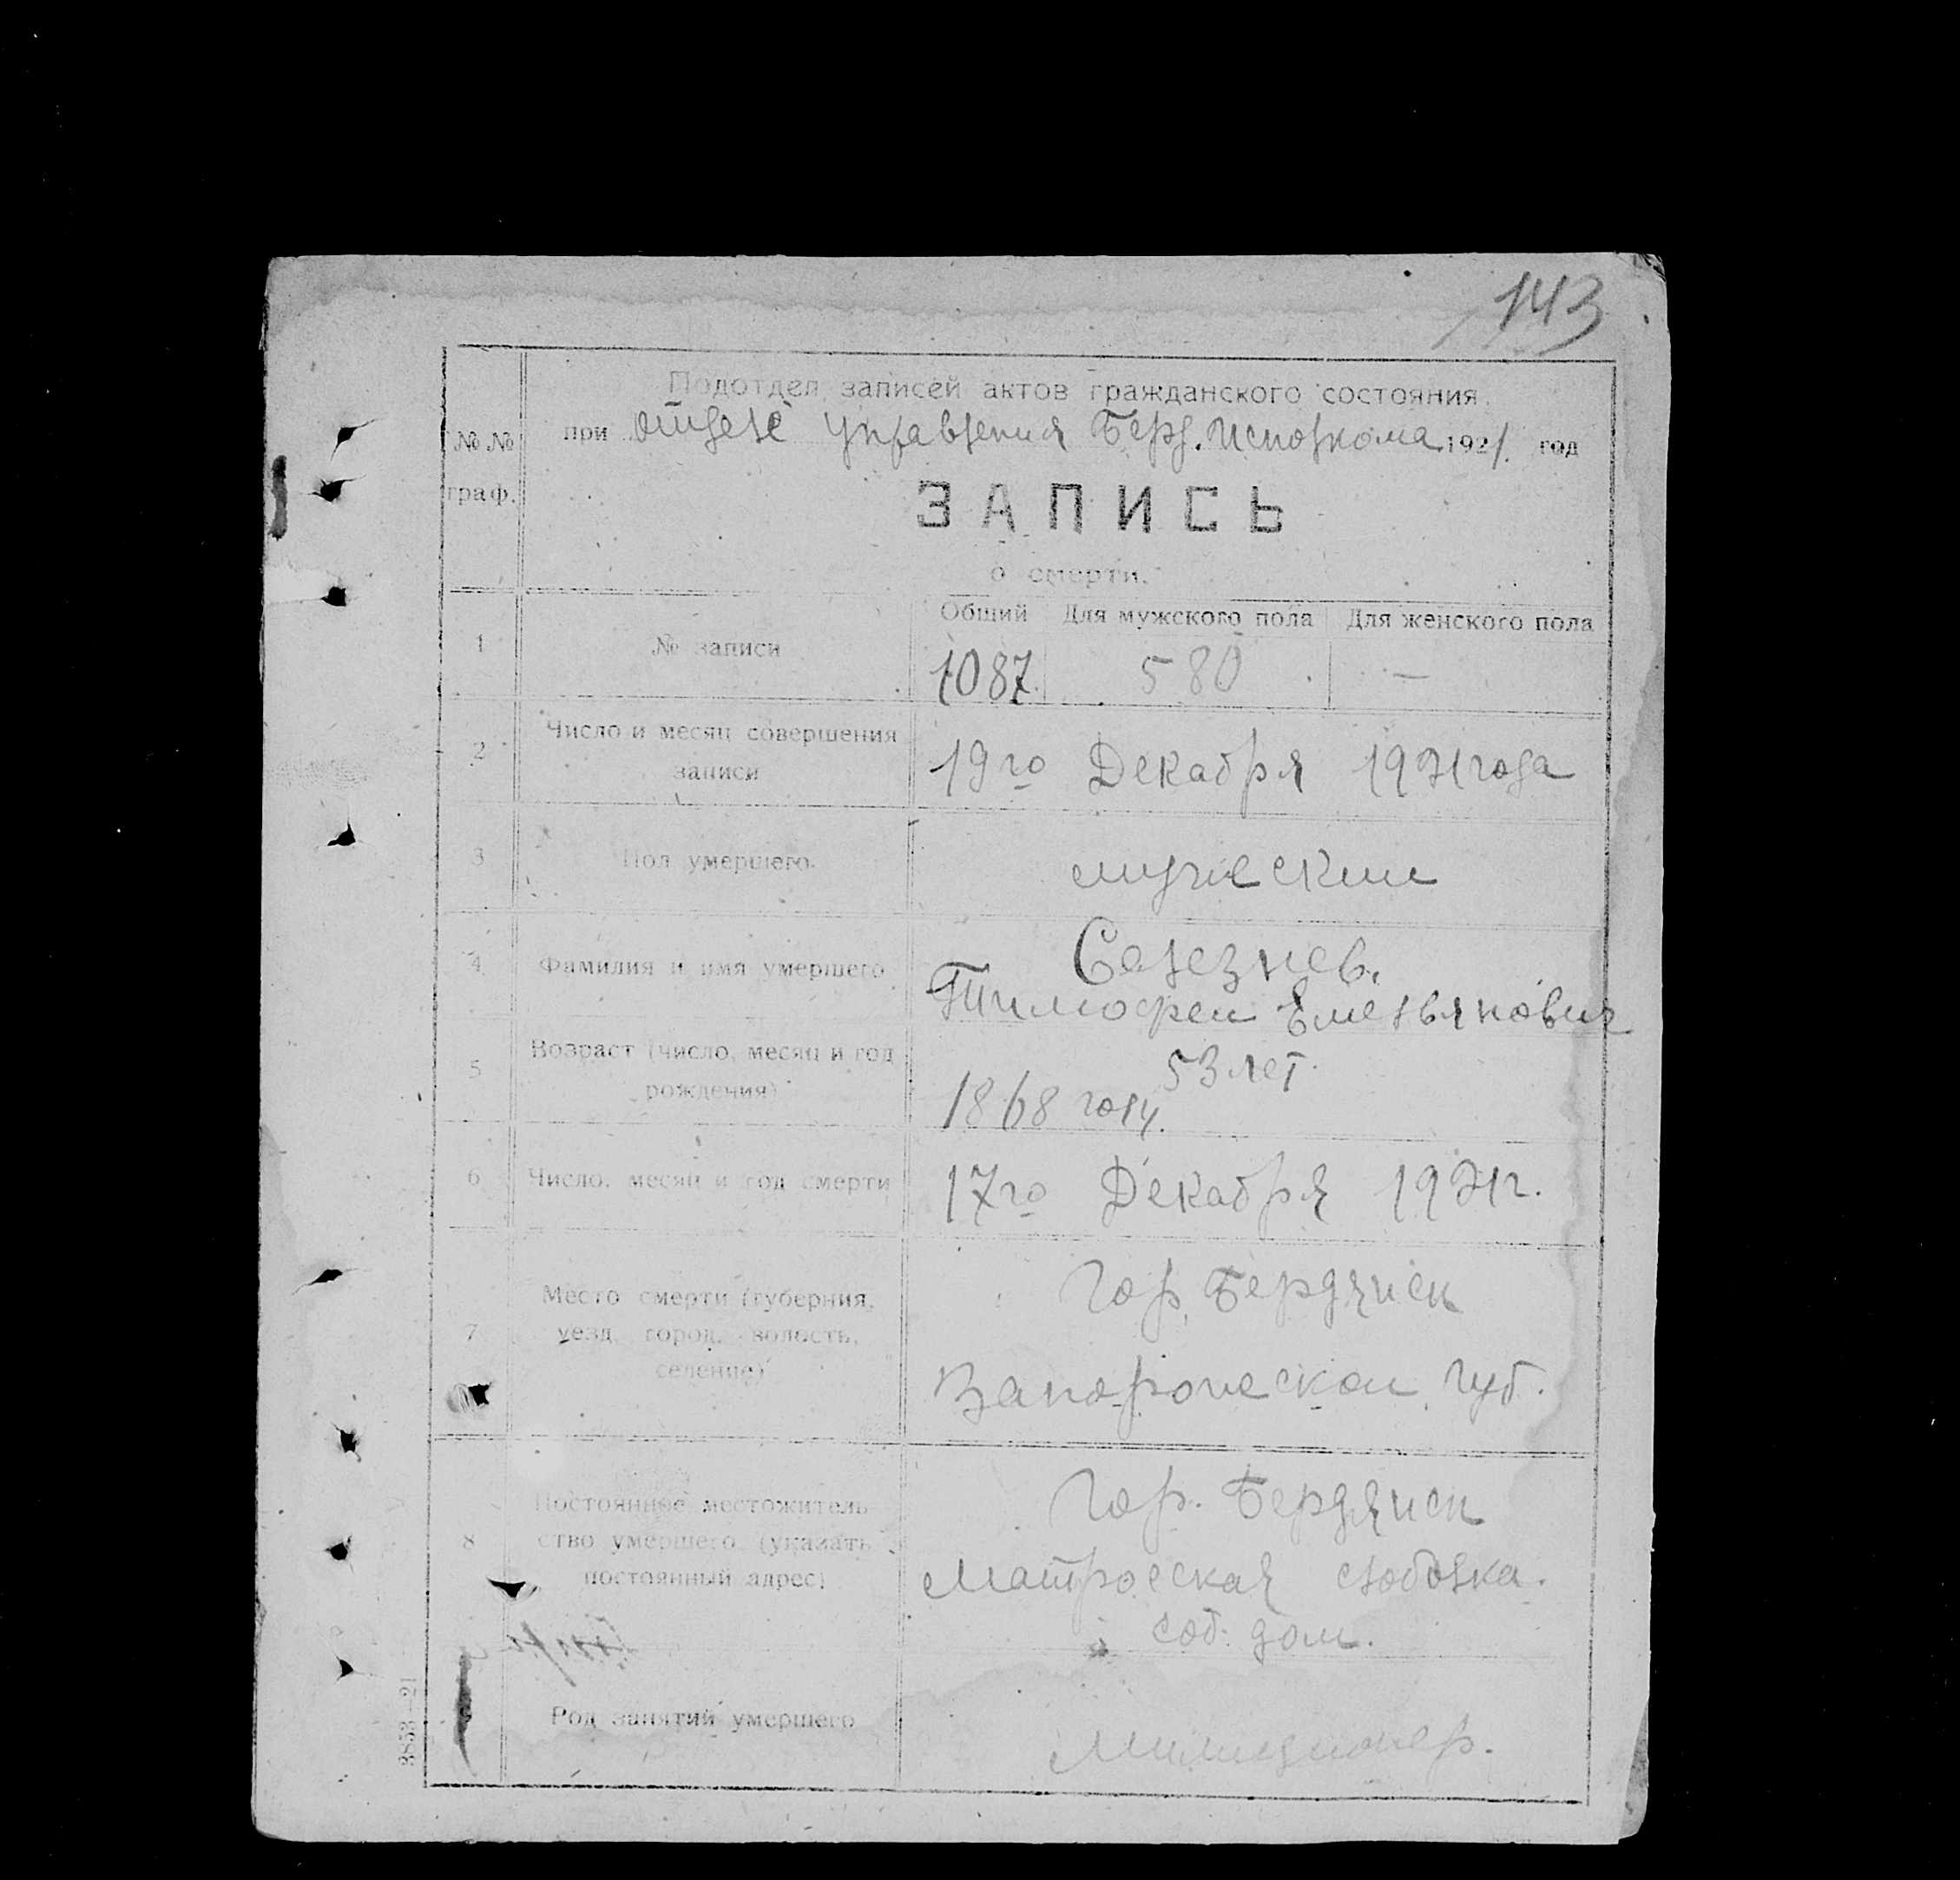 143
Подотдел записей актов гражданского состояния.
№№ граф.
при отделе Управления Берд. Исполкома 1921 год
ЗАПИСЬ
о смерти.
Общий Для мужского пола Для женского пола
1 № записи 1087 580 —
2 Число и месяц совершения
записи
19го Декабря 1921 года
3 Пол умершего. мужеский
4 Фамилия и имя умершего
Селезнев.
Тимофей Емельянович
5 Возраст (число, месяц и год
рождения)
53 лет.
1868 году.
6 Число, месяц и год смерти 17го Декабря 1921 г.
7 Место смерти (губерния,
уезд, город, волость,
селение)
Гор. Бердянск
Запорожеской губ.
8 Постоянное местожитель
ство умершего (указать
постоянный адрес)
Гор. Бердянск
Матросская слободка.
соб. дом.
Род занятий умершего Милиционер.
3853—21